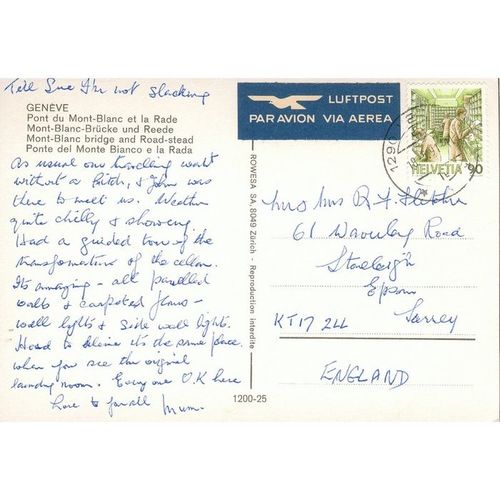 Tell Sue I'm not slacking
GENÈVE
Pont du Mont-Blanc et la Rade
Mont-Blanc-Brücke und Reede
Mont-Blanc bridge and Road-stead
Ponte del Monte Bianco e la Rada
As usual our travelling went
without a hitch, & John was
there to meet us. Weather
quite chilly & showery.
Had a guided tour of the
transformation of the cellar.
Its amazing - all panelled
walls & carpeted floors -
wall lights & side wall lights.
Hard to believe it's the same place
when you see the original
laundry room. Everyone O.K here
Love to you all Mum.
LUFTPOST
PAR AVION VIA AEREA
HELVETIA 90
1290
ROWESA SA, 8049 Zürich - Reproduction interdite
1200-25
Mrs R F
61 Waverley Road
Stoneleigh
Epsom
Surrey
KT17 2LL
ENGLAND